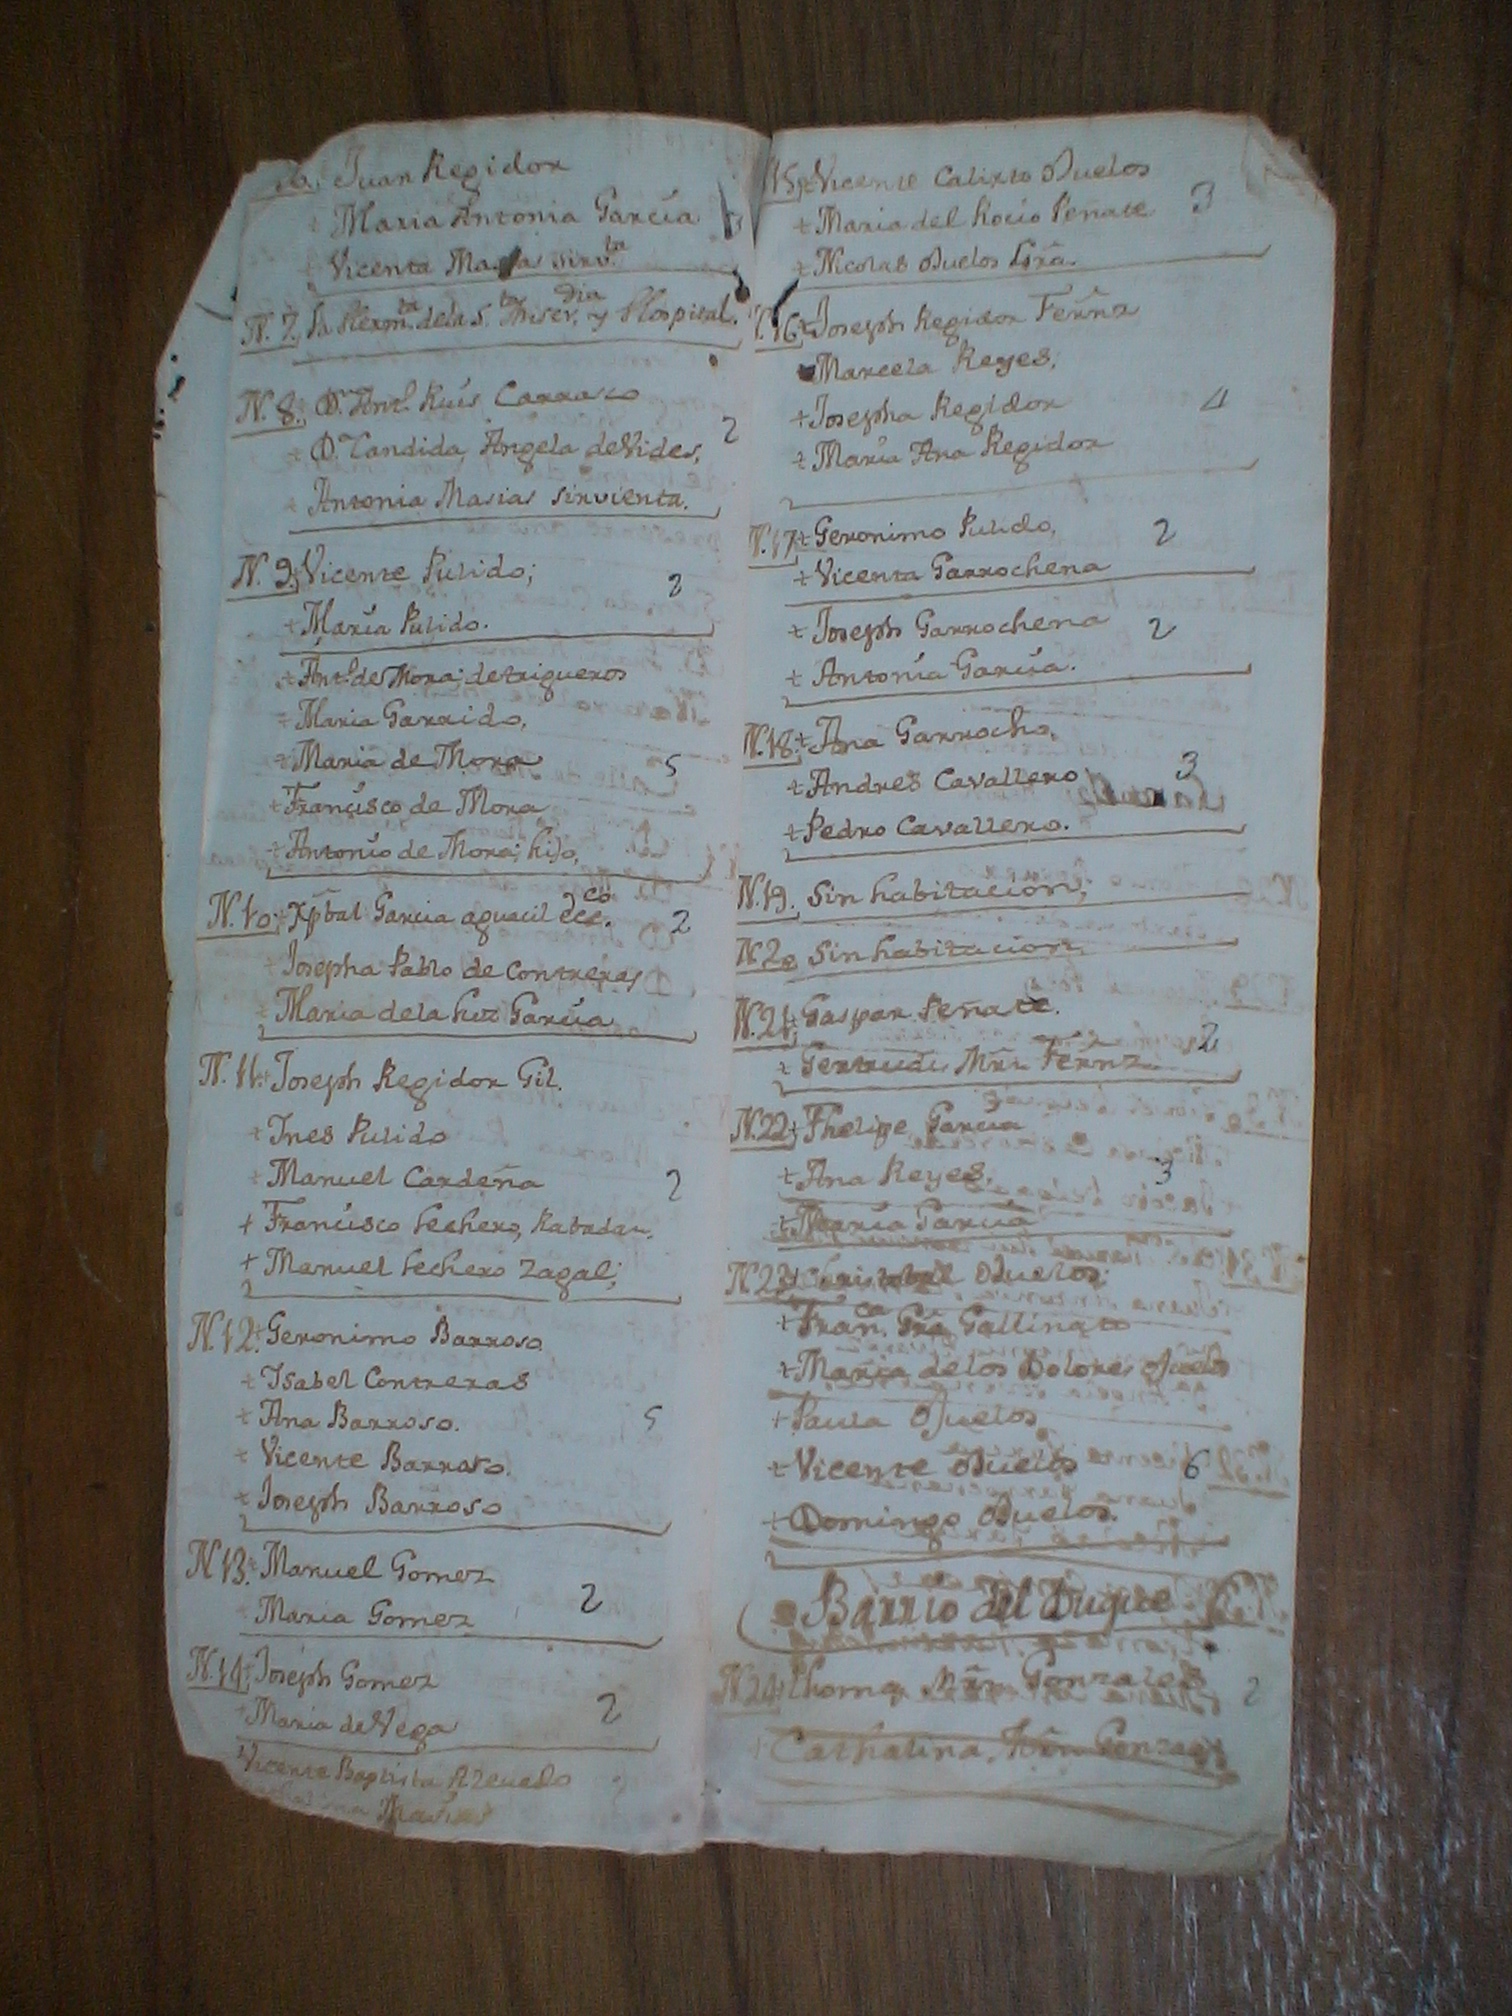 Juan Regidor
+ Maria Antonia García 3
+ Vicenta sirv.ta
N. 7. La Herm.d de la S.ta Miser.dia y Hospital.
N. 8. D. Ant.o Ruis Carrasco
+ D. Candida Angela de Vides, 2
+ Antonia Masias sirvienta.
N. 9. + Vicente Pulido; 2
+ María Pulido.
+ Ant.o de Mora; de trigueros
+ Maria Garrido,
+ Maria de Mora 5
+ Francisco de Mora
+ Antonio de Mora; hijo,
N. 10. + Xpbal Garcia aguacil ecc.co 2
Josepha Pablo de Contreras
+ Maria de la Luz García
N. 11. + Joseph Regidor Gil.
+ Ines Pulido
+ Manuel Cardeña 2
+ Francisco Lechero, Rabadan.
+ Manuel Lechero Zagal;
N 12. + Geronimo Barroso
+ Isabel Contreras
+ Ana Barroso. 5
+ Vicente Barroso.
+ Joseph Barroso
N 13. + Manuel Gomez
Maria Gomez 2
N. 14. + Joseph Gomez
+ Maria de Vega 2
+ Vicente Baptista Azevedo 2
15. + Vicente Calixto Oduelos
+ Maria del Rocio Peñate 3
+ Nicolas Oduelos
N. 16. + Joseph Regidor Ferñz
+ Marcela Reyes,
+ Josepha Regidor 4
+ María Ana Regidor
N. 17. + Geronimo Pulido, 2
+ Vicenta Garrochena
+ Joseph Garrochena 2
+ Antonía García.
N. 18. + Ana Garrocho,
+ Andres Cavallero 3
+ Pedro Cavallero.
N. 19. Sin habitacion;
N. 20 Sin habitacion.
N. 21. + Gaspar Peñate.
+ Gertrudis Mrñ Ferñz 2
N. 22. + Fhelipe Garcia
+ Ana Reyes. 3
+ María García
N. 23. + Christobal Oduelos;
+ Fran.ca Grã Gallinato
+ Maria de los Dolores Oduelos
+ Paula Oduelos
+ Vicente Oduelos 6
+ Domingo Oduelos.
Barrio del Duque
N. 24. Thomas Mrñ Gonzales 2
+ Cathalina Mrñ Gonzales